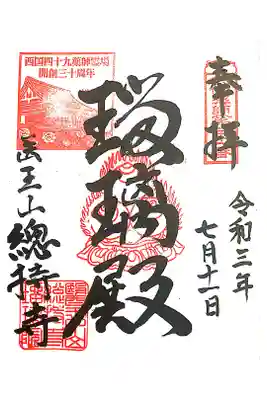 奉拝
令和三年
七月十一日
瑠璃殿
西国四十九薬師霊場
開創三十周年
医王山總持寺